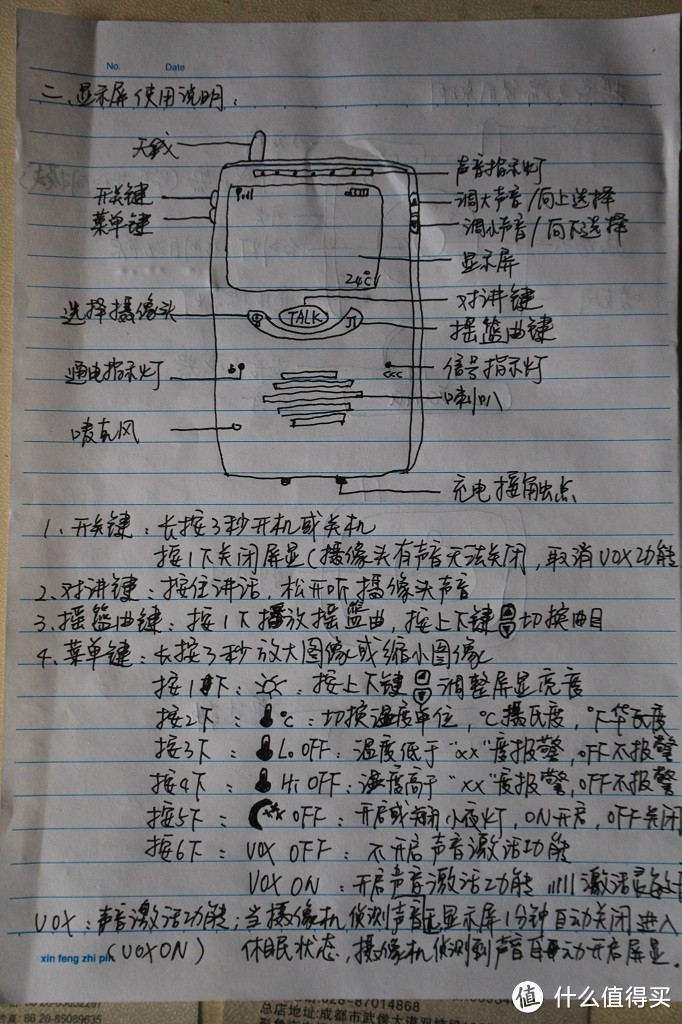 No. Date
二、显示屏使用说明：
天线
声音指示灯
开关键
调大声音/向上选择
菜单键
调小声音/向下选择
显示屏
24℃
对讲键
选择摄像头
TALK
摇篮曲键
通电指示灯
信号指示灯
喇叭
唛克风
充电接触点
1、开关键：长按3秒开机或关机
按1下关闭屏显(摄像头有声音无法关闭,取消VOX功能
2、对讲键：按住讲话，松开听摄像头声音
3、摇篮曲键：按1下播放摇篮曲，按上下键切换曲目
4、菜单键：长按3秒放大图像或缩小图像
按1下：按上下键调整屏显亮度
按2下：℃：切换温度单位，℃摄氏度，℉华氏度
按3下：Lo OFF：温度低于“xx”度报警，OFF不报警
按4下：Hi OFF：温度高于“xx”度报警，OFF不报警
按5下：OFF：开启或关闭小夜灯，ON开启，OFF关闭
按6下：VOX OFF：不开启声音激活功能
VOX ON：开启声音激活功能 激活灵敏
VOX：声音激活功能；当摄像机侦测声音无显示屏1分钟自动关闭进入
(VOX ON) 休眠状态，摄像机侦测到声音自动开启屏显.
xin feng zhi pin
028-87014868
88 28-85089635
总店地址:成都市武侯大道双
值 什么值得买